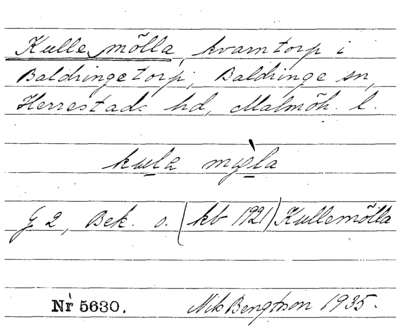 Kulle mölla, kvarntorp i
Baldringetorp, Baldringe sn,
Herrestads hd, Malmöh. l.
kula mỳla
G 2, Bek. o. (kb 1921) Kullemölla
Nr 5630. Nils Bengtson 1935.